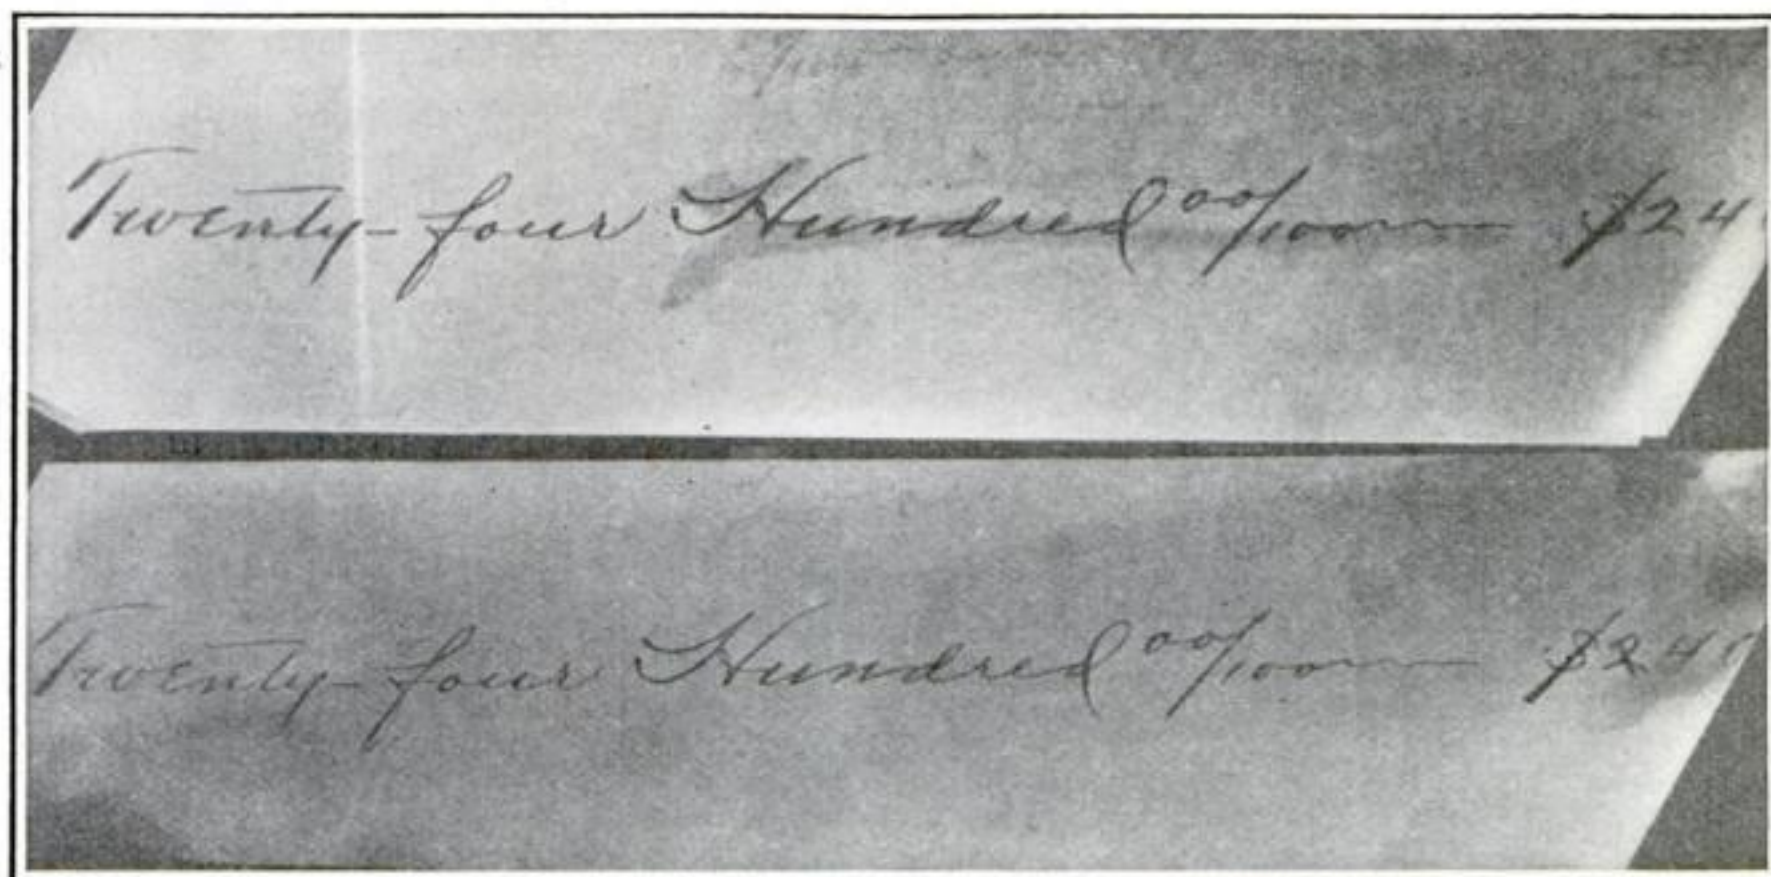 Twenty-four Hundred 00/100 $24
Twenty-four Hundred 00/100 $240